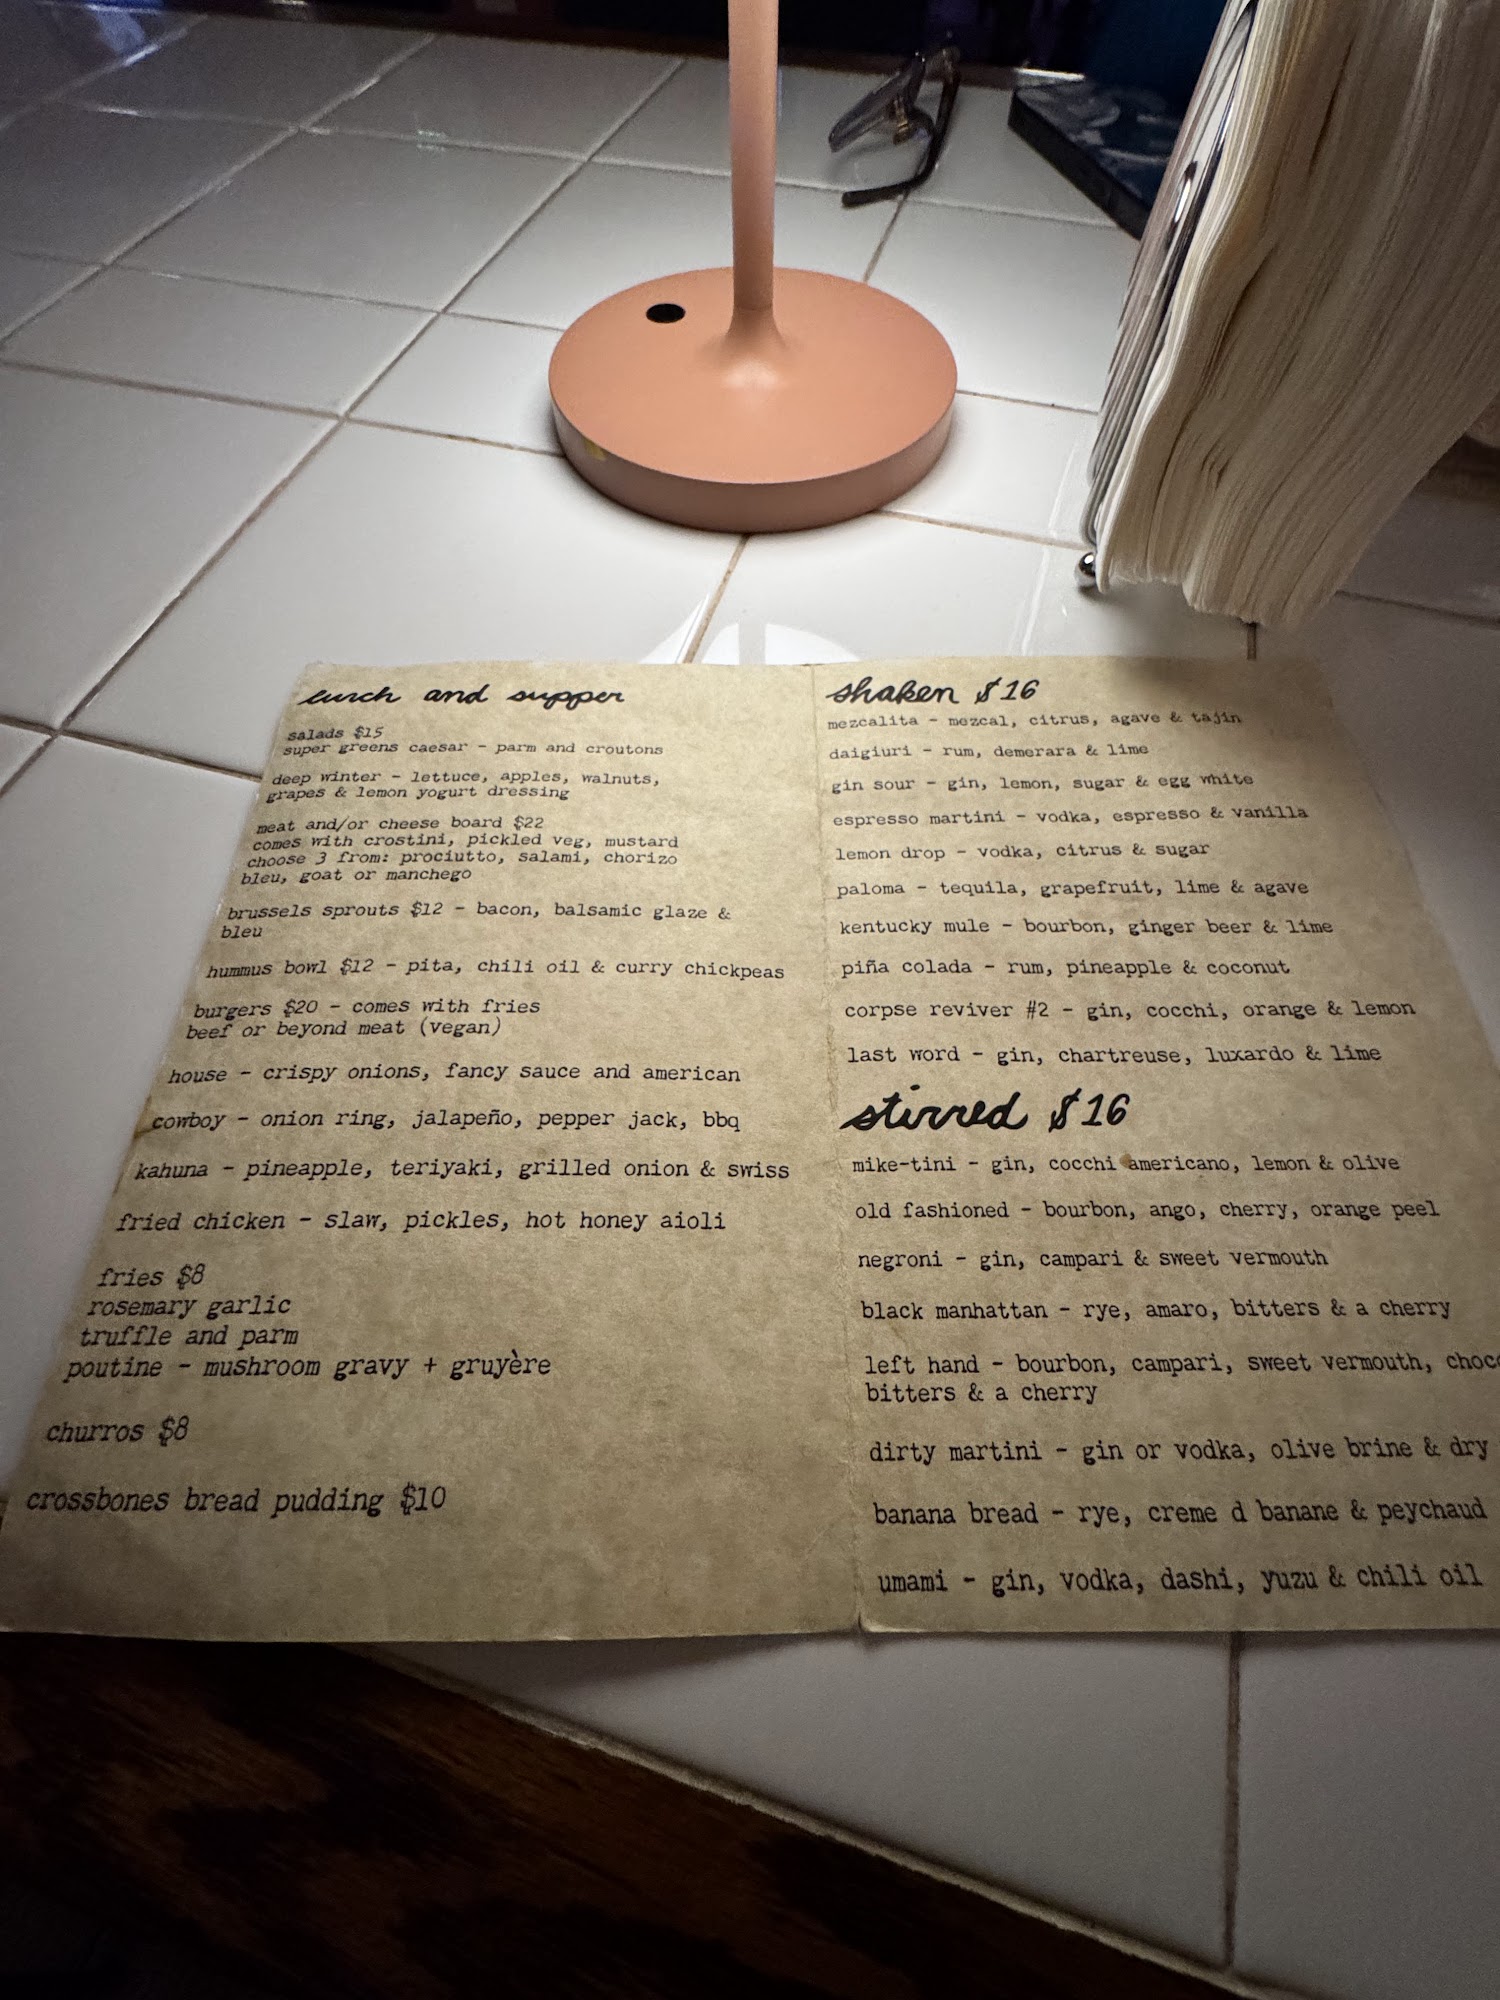 lunch and supper
salads $15
super greens caesar - parm and croutons
deep winter - lettuce, apples, walnuts,
grapes & lemon yogurt dressing
meat and/or cheese board $22
comes with crostini, pickled veg, mustard
choose 3 from: prociutto, salami, chorizo
bleu, goat or manchego
brussels sprouts $12 - bacon, balsamic glaze &
bleu
hummus bowl $12 - pita, chili oil & curry chickpeas
burgers $20 - comes with fries
beef or beyond meat (vegan)
house - crispy onions, fancy sauce and american
cowboy - onion ring, jalapeño, pepper jack, bbq
kahuna - pineapple, teriyaki, grilled onion & swiss
fried chicken - slaw, pickles, hot honey aioli
fries $8
rosemary garlic
truffle and parm
poutine - mushroom gravy + gruyère
churros $8
crossbones bread pudding $10
shaken $16
mezcalita - mezcal, citrus, agave & tajin
daigiuri - rum, demerara & lime
gin sour - gin, lemon, sugar & egg white
espresso martini - vodka, espresso & vanilla
lemon drop - vodka, citrus & sugar
paloma - tequila, grapefruit, lime & agave
kentucky mule - bourbon, ginger beer & lime
piña colada - rum, pineapple & coconut
corpse reviver #2 - gin, cocchi, orange & lemon
last word - gin, chartreuse, luxardo & lime
stirred $16
mike-tini - gin, cocchi americano, lemon & olive
old fashioned - bourbon, ango, cherry, orange peel
negroni - gin, campari & sweet vermouth
black manhattan - rye, amaro, bitters & a cherry
left hand - bourbon, campari, sweet vermouth,
bitters & a cherry
dirty martini - gin or vodka, olive brine & dry
banana bread - rye, creme d banane & peychaud
umami - gin, vodka, dashi, yuzu & chili oil